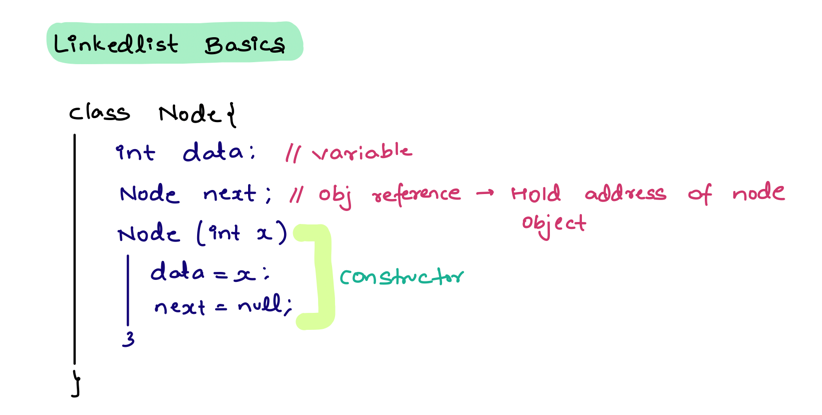 Linkedlist Basics
class Node{
int data; // variable
Node next; // obj reference → Hold address of node
object
Node (int x)
data = x;
next = null;
constructor
}
}